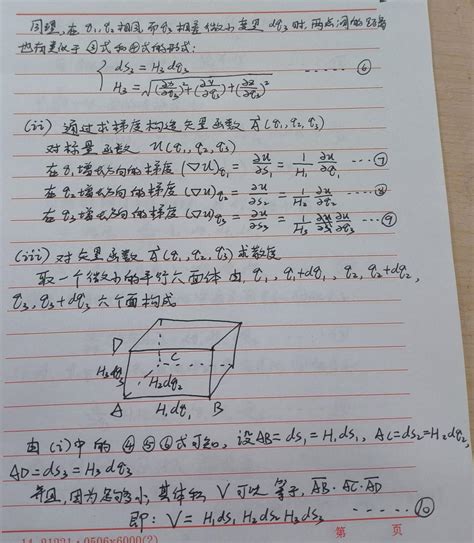 同理,在q₁,q₂相同,而q₃相差微小变量dq₃时,两点间的距离
也有类似于④式和⑤式的形式:
{ ds₃ = H₃dq₃
H₃ = √(∂x/∂q₃)²+(∂y/∂q₃)²+(∂z/∂q₃)² ……⑥
(ii) 通过求梯度构造矢量函数 A⃗(q₁,q₂,q₃)
对标量函数 u(q₁,q₂,q₃)
在q₁增长方向的梯度 (∇u)q₁ = ∂u/∂s₁ = 1/H₁ ∂u/∂q₁ …⑦
在q₂增长方向的梯度 (∇u)q₂ = ∂u/∂s₂ = 1/H₂ ∂u/∂q₂ …⑧
在q₃增长方向的梯度 (∇u)q₃ = ∂u/∂s₃ = 1/H₃ ∂u/∂q₃ …⑨
(iii) 对矢量函数 A⃗(q₁,q₂,q₃) 求散度
取一个微小的平行六面体由,q₁,q₁+dq₁,q₂,q₂+dq₂,
q₃,q₃+dq₃ 六个面构成
D
C
H₃dq₃
H₂dq₂
A H₁dq₁ B
由(i)中的④⑤⑥式可知,设AB=ds₁=H₁ds₁, AC=ds₂=H₂dq₂,
AD=ds₃=H₃dq₃
并且,因为足够小,其体积V可以等于,AB·AC·AD
即: V = H₁ds₁ H₂ds₂ H₃ds₃ ……⑩
14-81221·0506x6000(2) 第 页